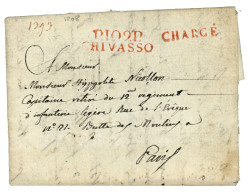 1808
P102P
CHIVASSO CHARGÉ
A Monsieur
Monsieur Hippolite Nicollon
Capitaine retiré du 12e régiment
d'infanterie légère Rue de l'Evêque
N° 21. Butte des Moulins
à
Paris